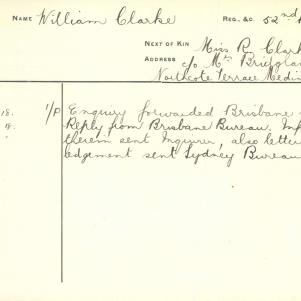 NAME William Clarke REG. &C. 52nd
NEXT OF KIN Miss R. Clark
ADDRESS c/o Mrs
Northcote Terrace Medin
18. 1/P Enquiry forwarded Brisbane
18. Reply from Brisbane Bureau.
therein sent Inquirer, also letter
ledgement sent Sydney Bureau